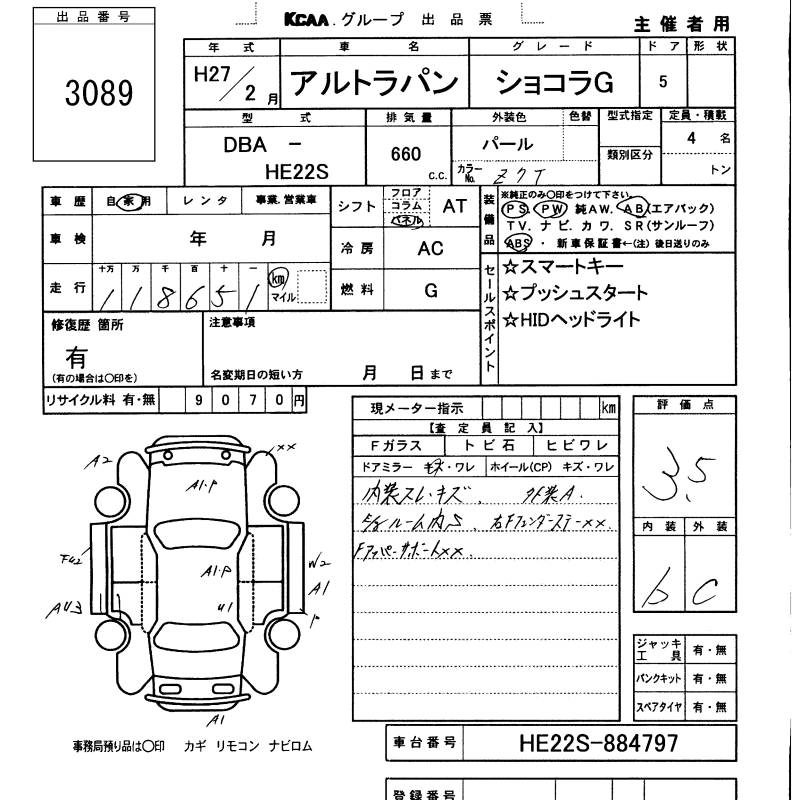 KCAA グループ 出品票
主催者用
出品番号
3089
年式 車名 グレード ドア 形状
H27/2月 アルトラパン ショコラG 5
型式 排気量 外装色 色替 型式指定 定員・積載
DBA - HE22S 660 c.c. パール 類別区分 4 名
カラーNo. Z7T トン
車歴 自家用 レンタ 事業、営業車
シフト フロア コラム パネル AT
装備品 ※純正のみ〇印をつけて下さい。
PS. PW 純AW. AB(エアバック)
TV. ナビ. カワ. SR(サンルーフ)
ABS・新車保証書←(注)後日送りのみ
車検 年 月
冷房 AC
走行 十万 万 千 百 十 一 km マイル
118651
燃料 G
セールスポイント
☆スマートキー
☆プッシュスタート
☆HIDヘッドライト
修復歴 箇所
有
(有の場合は〇印を)
注意事項
名変期日の短い方 月 日まで
リサイクル料 有・無 9070円
現メーター指示 km
【査定員記入】
Fガラス トビ石 ヒビワレ
ドアミラー キズ・ワレ ホイール(CP) キズ・ワレ
内装スレ・キズ、 外装A.
ルーム内S、右Fフェンダーステーxx.
Fアッパーサポートxx.
評価点
3.5
内装 外装
b C
ジャッキ工具 有・無
パンクキット 有・無
スペアタイヤ 有・無
A2
xx
A1・P
FU2
A1・P
W2
A1
AU3
U1
P
A1
事務局預り品は〇印 カギ リモコン ナビロム
車台番号 HE22S-884797
登録番号